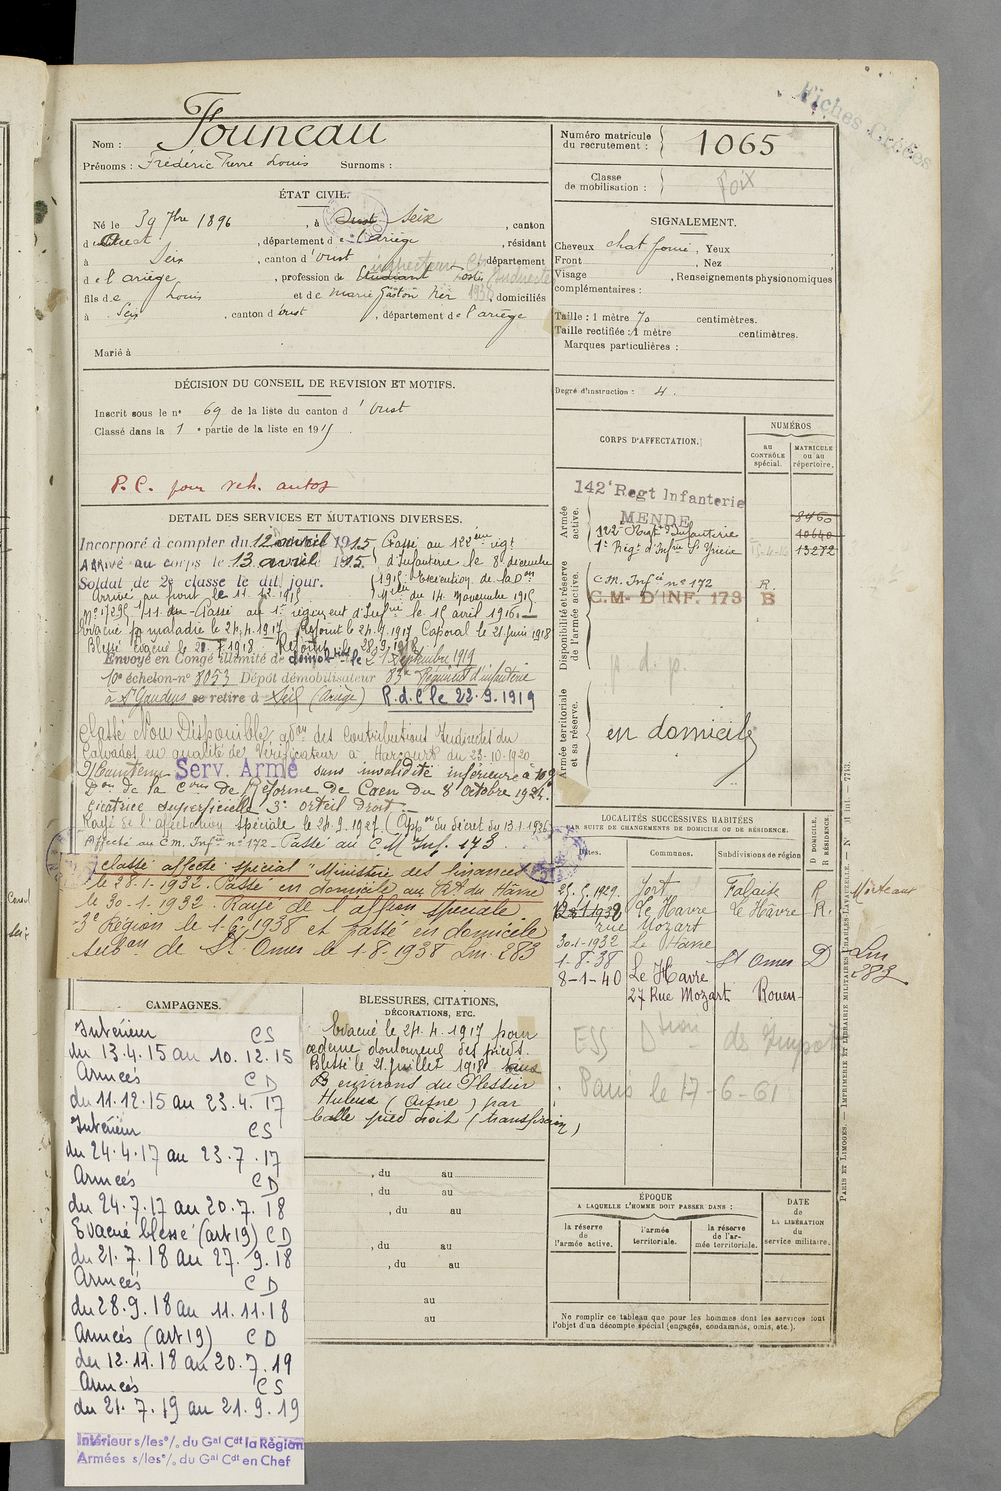 Fiches Créées
Nom : Founeau
Prénoms : Frédéric Pierre Louis Surnoms :
Numéro matricule du recrutement : 1065
Classe de mobilisation :
Foix
ÉTAT CIVIL.
Né le 39 7bre 1896, à Oust Seix, canton
d'Oust, département de l'Ariège, résidant
à Seix, canton d'Oust, département
de l'ariège, profession de Etudiant
fils de Louis et de Marie Gaston Ner, domiciliés
1938
à Seix, canton d'Oust, département de l'ariège
Marié à
SIGNALEMENT.
Cheveux chat foncé, Yeux
Front , Nez
Visage , Renseignements physionomiques
complémentaires :
Taille : 1 mètre 70 centimètres.
Taille rectifiée : 1 mètre centimètres.
Marques particulières :
Degré d'instruction : 4.
DÉCISION DU CONSEIL DE REVISION ET MOTIFS.
Inscrit sous le n° 69 de la liste du canton d'Oust
Classé dans la 1e partie de la liste en 1915.
P.C. pour veh. autos
DETAIL DES SERVICES ET MUTATIONS DIVERSES.
Incorporé à compter du 12 avril 1915 Passé au 122ème régt
Arrivé au corps le 13 avril 1915. d'Infanterie le 8 décembre
Soldat de 2e classe le dit jour. 1915. Exécution de la Don
Arrivé au front le 11 Xbre 1915 Mlle du 14 Novembre 1915
N° 17295 1/11 du - Passé au 1er régiment d'Infrie le 15 avril 1916. -
Evacué pr maladie le 24.4.1917 Rejoint le 24.9.1917 Caporal le 21 juin 1918
Blessé évacué le 21.7.1918 - Rejoint le 28.9.1918
Envoyé en Congé illimité de démobilon le 21 Septembre 1919
10e échelon-n° 8053 Dépôt démobilisateur 83e Régiment d'infanterie
à St Gaudens se retire à Seix (Ariège) P.d.C le 22.9.1919
Classé Non Disponible, qdon des Contributions Indirectes du
Calvados en qualité de Vérificateur à Harcourt du 23-10-1920
Maintenu Serv. Armé sans invalidité inférieure à 10%
Don de la Cion de Réforme de Caen du 8 Octobre 1924.
Cicatrice superficielle 3e orteil Droit. -
Rayé de l'affectation spéciale le 24.9.1927 (Appon du décret du 13.1.1926)
Affecté au C.M. Infie n° 172 - Passé au C.M. Inf. 173.
Classé affecté spécial "Ministère des finances"
le 28-1-1932. Passé en domicile au Rt du Hâvre
le 30-1.1932. Rayé de l'affon spéciale
3e Région le 1-6-1938 et passé en domicile
subon de St Omer le 1-8-1938 Lm 283
CORPS D'AFFECTATION.
NUMÉROS
AU CONTRÔLE spécial.
MATRICULE ou au répertoire.
Armée active.
142e Regt Infanterie
MENDE
122e Regt d'Infanterie
1er Régt d'Infrie St Yrieix
8460
10640
13272
Disponibilité et réserve de l'armée active.
C.M. Infie n° 172 R.
C.M. D'INF. 173 B
p.d.p.
Armée territoriale et sa réserve.
en domicile
LOCALITÉS SUCCESSIVES HABITÉES
PAR SUITE DE CHANGEMENTS DE DOMICILE OU DE RÉSIDENCE.
Dates. Communes. Subdivisions de région D DOMICILE. R RÉSIDENCE.
25.5.1929 Jort Falaise R Morteaux
12-1-1932 Le Havre Le Hâvre R.
rue Mozart
30-1-1932 Le Havre
1-8-38 St Omer D Lm 283
8-1-40 Le Havre
27 Rue Mozart Rouen
ESS Dtion des Impots
Paris le 17-6-61
CAMPAGNES.
Intérieur CS
du 13.4.15 au 10.12.15
Armées CD
du 11.12.15 au 23.4.17
Intérieur CS
du 24.4.17 au 23.7.17
Armées CD
du 24.7.17 au 20.7.18
Evacué blessé (art 19) CD
du 21.7.18 au 27.9.18
Armées CD
du 28.9.18 au 11.11.18
Armées (art 19) CD
du 12.11.18 au 20.7.19
Armées CS
du 21.7.19 au 21.9.19
Intérieur s/les°/. du Gal Cdt la Région
Armées s/les°/. du Gal Cdt en Chef
BLESSURES, CITATIONS, DÉCORATIONS, ETC.
Evacué le 24.4.1917 pour
œdème douloureux des pieds.
Blessé le 21 juillet 1918 aux
environs du Plessier
Huleux (Aisne) par
balle pied droit (transfixion)
, du au
, du au
, du au
, du au
, du au
au
au
ÉPOQUE
A LAQUELLE L'HOMME DOIT PASSER DANS :
la réserve de l'armée active.
l'armée territoriale.
la réserve de l'armée territoriale.
DATE de LA LIBÉRATION du service militaire.
Ne remplir ce tableau que pour les hommes dont les services font
l'objet d'un décompte spécial (engagés, condamnés, omis, etc.).
PARIS ET LIMOGES. — IMPRIMERIE ET LIBRAIRIE MILITAIRES CHARLES-LAVAUZELLE. — N°